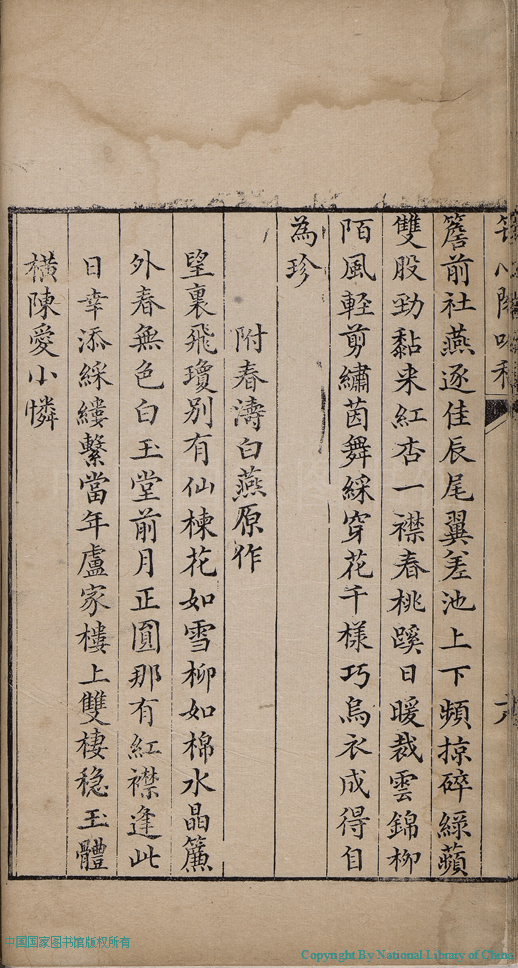 簷前社燕逐佳辰尾翼差池上下頻掠碎綠蘋
雙股勁黏来紅杏一襟春桃蹊日暖裁雲錦柳
陌風輕剪繡茵舞綵穿花千樣巧烏衣成得自
為珍
附春濤白燕原作
望裏飛瓊別有仙楝花如雪柳如棉水晶簾
外春無色白玉堂前月正圓那有紅襟逢此
日幸添綵縷繫當年盧家樓上雙棲穏玉體
橫陳愛小憐
中国国家图书馆版权所有
Copyright By National Library of China